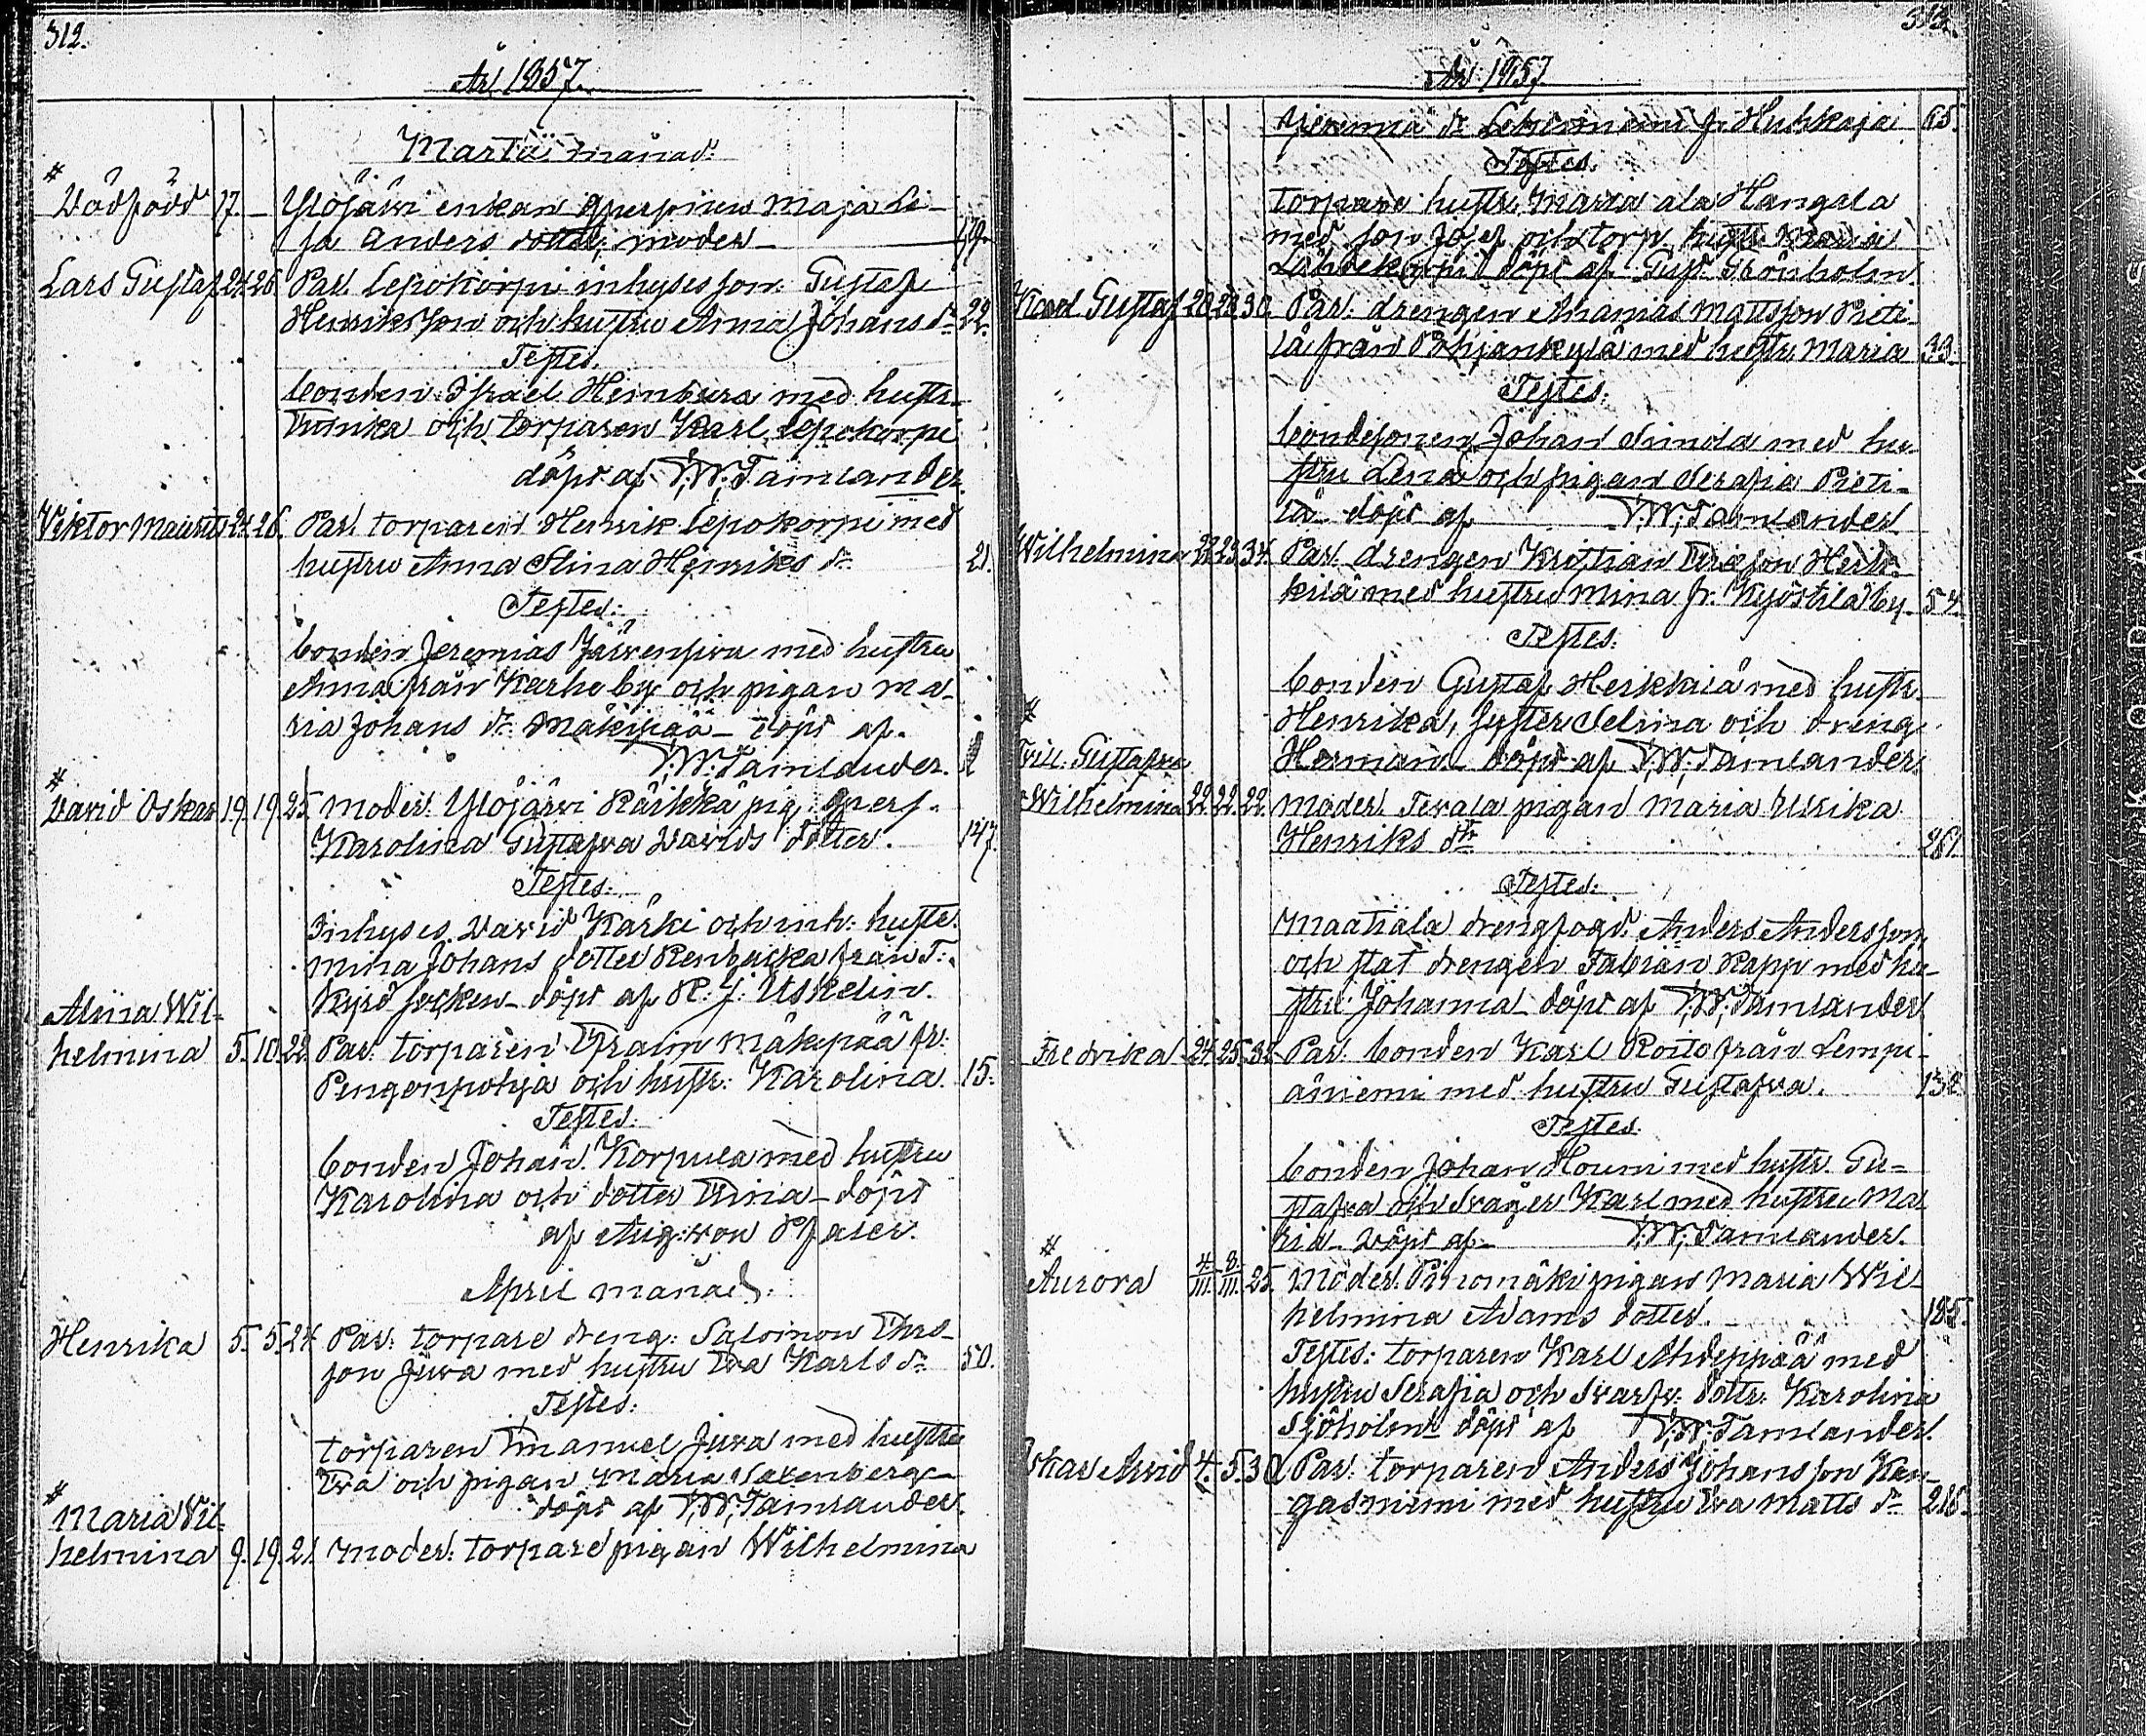 312.
År 1857.
Martii månad:
#
Dödfödd 17. – Ylöjärvi enkan Maja Li-
sa Anders dotter, moder – 179.
Lars Gustaf 24. 26. Par. Lepokorpi inhyses son: Gustaf
Henriksson och hustru Anna Johans dr. 22.
Testes.
bonden Israel Heinbura med hustr.
och torparen Karl Lepokorpi
döpt af T.W. Tamlander.
Viktor Maurits 24. 26. Par. torparen Henrik Lepokorpi med
hustru Anna Stina Henriks dr. 21.
Testes:
bonden Jeremias Järvensivu med hustru
Anna från Karhe by och pigan Ma-
ria Johans dr. Mäkipää – döpt af.
T.W. Tamlander.
#
David Oskar 19. 19. 25. Moder. Ylöjärvi Räikkä pig.
Karolina Gustafva Davids dotter. 147.
Testes:
Inhyses David Kärki och inh: hustr.
Mina Johans dotter Renbacka från T.
Kyrö socken – döpt af K. J. Uskelin.
Alina Wil-
helmina 5. 10. 22. Par. torparen Efraim Mäkipää fr.
Pengonpohja och hustr: Karolina. 15.
Testes.
bonden Johan Korpula med hustru
Karolina och dotter – döpt
af Aug: von Pfaler.
April månad:
Henrika 5. 5. 24. Par: torpare dreng: Salomon
son Juva med hustru Eva Karls dr. 50.
Testes:
torparen Emanuel Juva med hustru
Eva och pigan Maria Saxenberg –
döpt af T.W. Tamlander.
#
Maria Vil-
helmina 9. 19. 21. Moder: torpare pigan Wilhelmina
313.
År 1857
Jeremia dr. fr. Huhkaja 65.
Testes.
torpare hustr. Maria ala Hangala
med son Josef och torp. hustr. Maria
döpt af Gust. Grönholm.
Karl Gustaf 20. 23. 30. Par. drengen Ananias Mattsson Pieti-
lä från Pohjankylä med hustr. Maria 33.
Testes:
bondesonen Johan Simola med hu-
stru Lena och pigan Serafia Pieti-
lä döpt af T.W. Tamlander
Wilhelmina 22. 23. 34. Par. drengen Kristian Eriksson Heik-
kilä med hustru Mina fr. Kyöstilä by. 54.
Testes:
bonden Gustaf Heikkilä med hustr.
Henrika, syster Selina och dreng
Herman – döpt af T.W. Tamlander.
#
Tvill. Gustafva
o Wilhelmina 22. 22. 22. Moder. Tevala pigan Maria Ulrika
Henriks dr 261.
Testes:
Maatiala drengfogd: Anders Andersson,
och stat drengen Fabian Kappi med hu-
stru: Johanna – döpt af T.W. Tamlander
Fredrika 24. 25. 35. Par. bonden Karl Roito från Lempi-
äniemi med hustru Gustafva. 132
Testes.
bonden Johan Houni med hustr. Gu-
stafva och svåger Karl med hustru Ma
ria – döpt af – T.W. Tamlander.
#
Aurora 4/III. 8/III. 25. Moder. Pinomäki pigan Maria Wil-
helmina Adams dotter. 185.
Testes: torparen Karl Ahdeppää med
hustru Serafia och svarfv. dottr. Karolina
Sjöholm – döpt af T.W. Tamlander.
Oskar Arvid 4. 5. 30. Par. torparen Anders Johansson Kan-
gasniemi med hustru Eva Matts dr. 216.
KODAK S